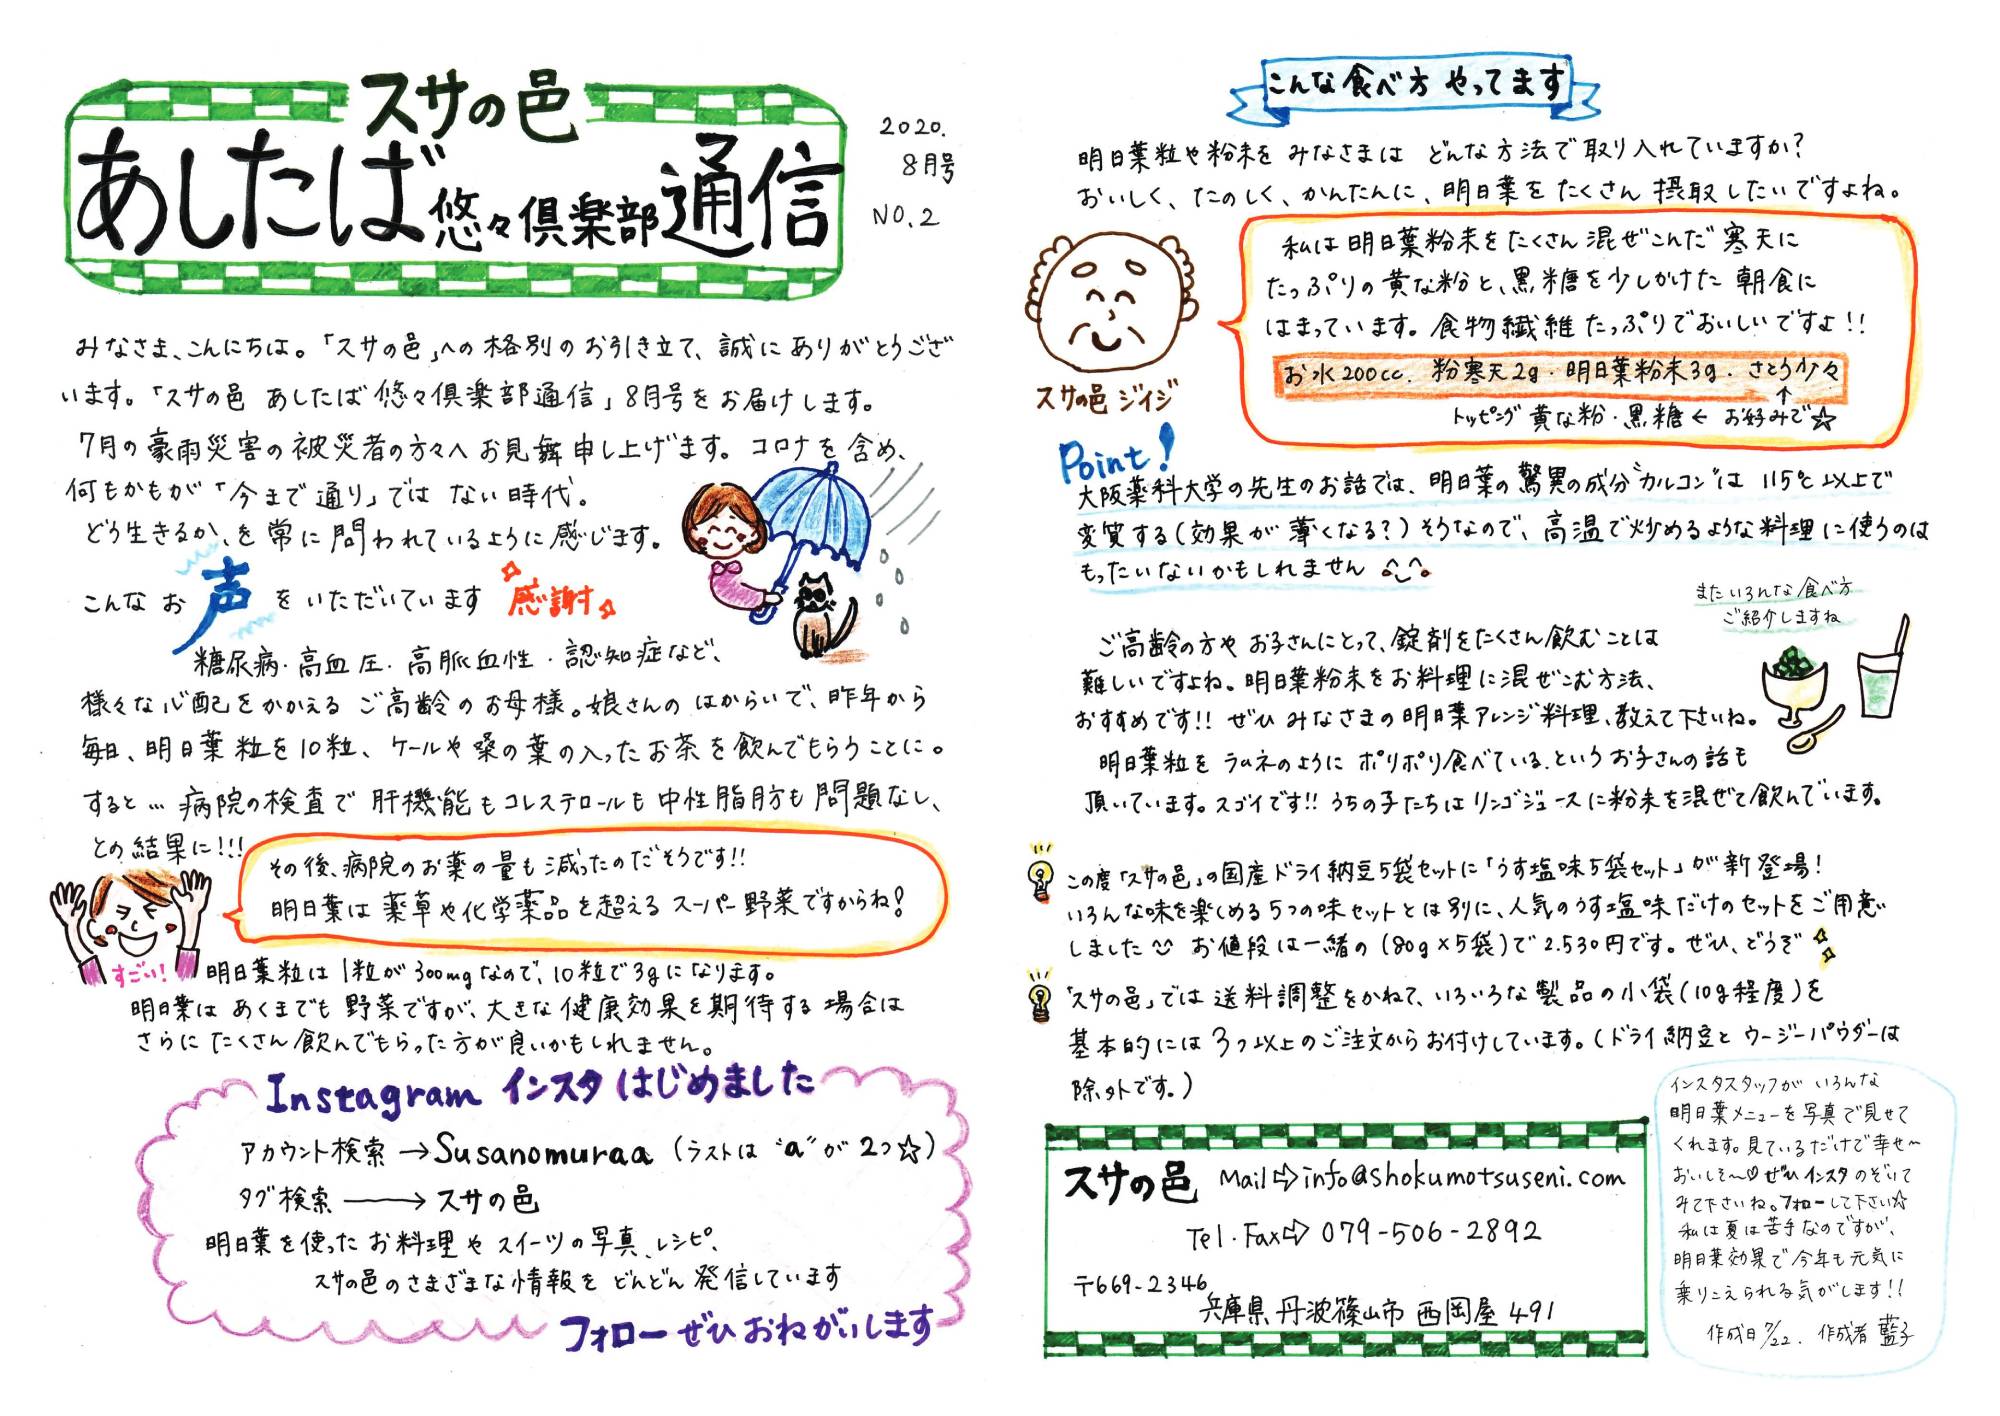 スサの邑
あしたば悠々倶楽部通信
2020.
8月号
NO.2
みなさま、こんにちは。「スサの邑」への格別のお引き立て、誠にありがとうござ
います。「スサの邑 あしたば悠々倶楽部通信」8月号をお届けします。
7月の豪雨災害の被災者の方々へお見舞申し上げます。コロナを含め、
何もかもが「今まで通り」ではない時代。
どう生きるか、を常に問われているように感じます。
こんなお声をいただいています 感謝
糖尿病・高血圧・高脈血性・認知症など、
様々な心配をかかえるご高齢のお母様。娘さんのはからいで、昨年から
毎日、明日葉粒を10粒、ケールや桑の葉の入ったお茶を飲んでもらうことに。
すると… 病院の検査で肝機能もコレステロールも中性脂肪も問題なし、
との結果に!!!
その後、病院のお薬の量も減ったのだそうです!!
明日葉は薬草や化学薬品を超えるスーパー野菜ですからね!
すごい!
明日葉粒は1粒が300mgなので、10粒で3gになります。
明日葉はあくまでも野菜ですが、大きな健康効果を期待する場合は
さらにたくさん飲んでもらった方が良いかもしれません。
Instagram インスタはじめました
アカウント検索→Susanomuraa (ラストは"a"が2つ☆)
タグ検索→スサの邑
明日葉を使ったお料理やスイーツの写真、レシピ、
スサの邑のさまざまな情報をどんどん発信しています
フォローぜひおねがいします
こんな食べ方やってます
明日葉粒や粉末をみなさまはどんな方法で取り入れていますか?
おいしく、たのしく、かんたんに、明日葉をたくさん摂取したいですよね。
私は明日葉粉末をたくさん混ぜこんだ寒天に
たっぷりの黄な粉と、黒糖を少しかけた朝食に
はまっています。食物繊維たっぷりでおいしいですよ!!
お水200cc. 粉寒天2g・明日葉粉末3g・さとう少々
↑
トッピング 黄な粉・黒糖 ← お好みで☆
スサの邑 ジイジ
Point!
大阪薬科大学の先生のお話では、明日葉の驚異の成分"カルコン"は115℃以上で
変質する(効果が薄くなる?)そうなので、高温で炒めるような料理に使うのは
もったいないかもしれません
またいろんな食べ方
ご紹介しますね
ご高齢の方やお子さんにとって、錠剤をたくさん飲むことは
難しいですよね。明日葉粉末をお料理に混ぜこむ方法、
おすすめです!! ぜひみなさまの明日葉アレンジ料理、教えて下さいね。
明日葉粒をラムネのようにポリポリ食べている、というお子さんの話も
頂いています。スゴイです!! うちの子たちはリンゴジュースに粉末を混ぜて飲んでいます。
この度「スサの邑」の国産ドライ納豆5袋セットに「うす塩味5袋セット」が新登場!
いろんな味を楽しめる5つの味セットとは別に、人気のうす塩味だけのセットをご用意
しました お値段は一緒の(80g×5袋)で2.530円です。ぜひ、どうぞ
「スサの邑」では送料調整をかねて、いろいろな製品の小袋(10g程度)を
基本的には3つ以上のご注文からお付けしています。(ドライ納豆とウージーパウダーは
除外です。)
スサの邑 Mail⇨info@shokumotsuseni.com
Tel・Fax⇨079-506-2892
〒669-2346
兵庫県丹波篠山市西岡屋491
インスタスタッフがいろんな
明日葉メニューを写真で見せて
くれます。見ているだけで幸せ〜
おいしそ〜♡ ぜひインスタのぞいて
みて下さいね。フォローして下さい☆
私は夏は苦手なのですが、
明日葉効果で今年も元気に
乗りこえられる気がします!!
作成日7/22. 作成者 藍子